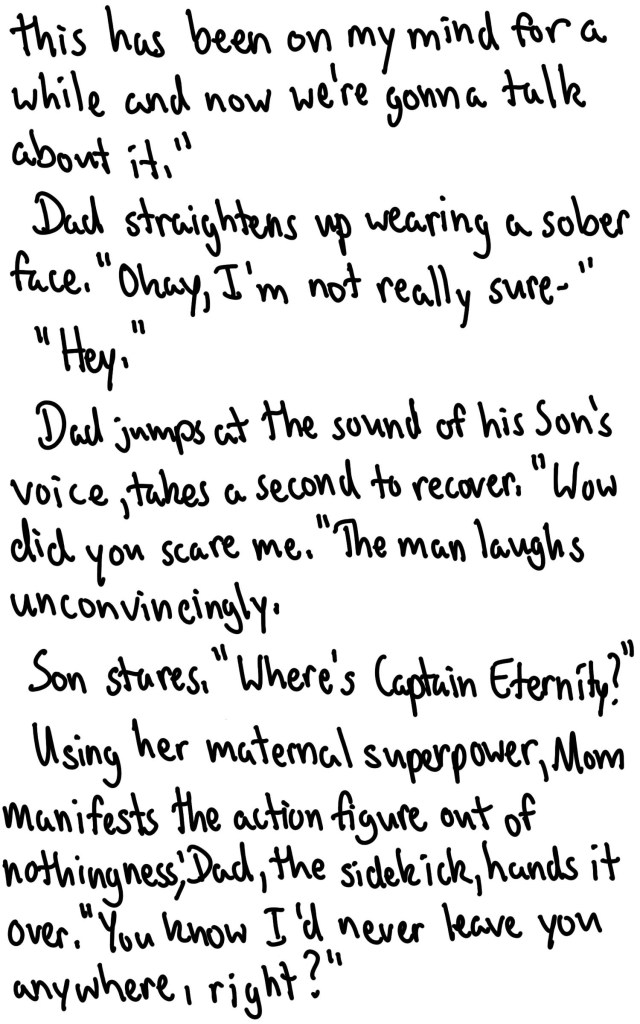 this has been on my mind for a
while and now we're gonna talk
about it."
Dad straightens up wearing a sober
face. "Okay, I'm not really sure-"
"Hey."
Dad jumps at the sound of his Son's
voice, takes a second to recover. "Wow
did you scare me." The man laughs
unconvincingly.
Son stares. "Where's Captain Eternity?"
Using her maternal superpower, Mom
manifests the action figure out of
nothingness; Dad, the sidekick, hands it
over. "You know I'd never leave you
anywhere, right?"